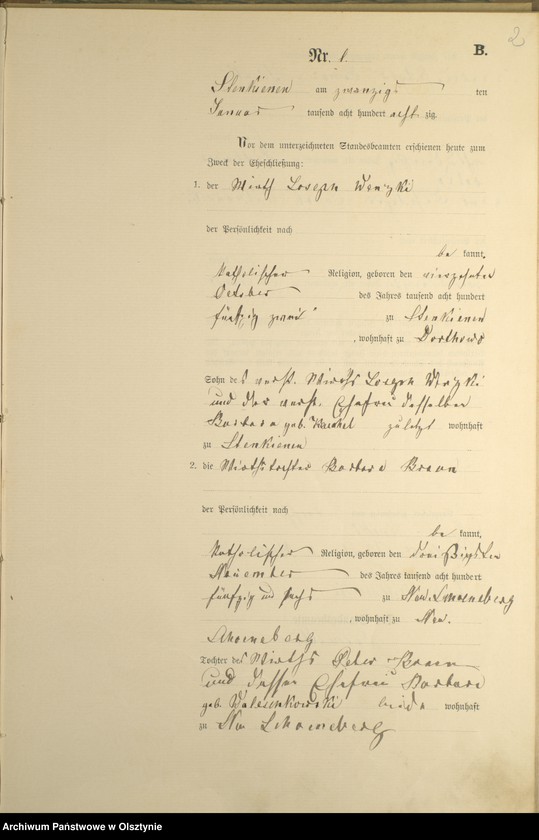 2
B.
Nr. 1
Stenkienen am zwanzigs ten
Januar tausend acht hundert acht zig
Vor dem unterzeichneten Standesbeamten erschienen heute zum
Zweck der Eheschließung:
1. der Wirth Joseph
der Persönlichkeit nach
be kannt,
katholischer Religion, geboren den vierzehnten
October des Jahres tausend acht hundert
fünfzig zwei zu Stenkienen
, wohnhaft zu Dorthowo
Sohn des verst. Wirths Joseph
und der verst. Ehefrau desselben
Barbara geb. zuletzt wohnhaft
zu Stenkienen
2. die Wirthstochter Barbara Braun
der Persönlichkeit nach
be kannt,
katholischer Religion, geboren den dreißigsten
November des Jahres tausend acht hundert
fünfzig und sechs zu Neu Schoeneberg
, wohnhaft zu Neu
Schoeneberg
Tochter des Wirths Peter Braun
und dessen Ehefrau Barbara
geb. beide wohnhaft
zu Neu Schoeneberg
Archiwum Państwowe w Olsztynie